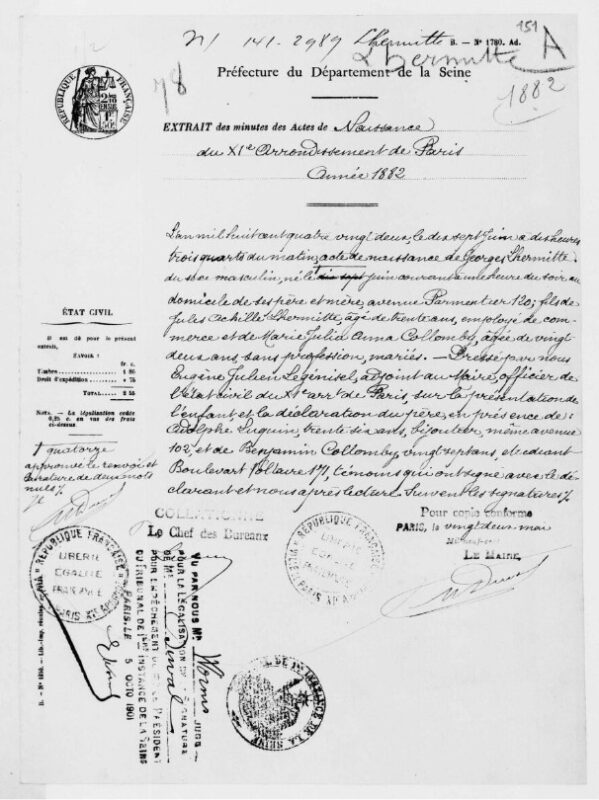 N/ 141. 2989 Lhermitte B. - N° 1780. Ad.
151
A
Lhermitte
1882
78
RÉPUBLIQUE FRANÇAISE
Préfecture du Département de la Seine
EXTRAIT des minutes des Actes de Naissance
du XIe Arrondissement de Paris
Année 1882
L'an mil huit cent quatre vingt deux, le dix sept Juin à dix heures
trois quarts du matin, acte de naissance de Georges Lhermitte
du sexe masculin, né le dix sept Juin courant à une heure du soir au
domicile de ses père et mère, avenue Parmentier 120; fils de
Jules Achille Lhermitte, âgé de trente ans, employé de com-
merce et de Marie Julia Anna Collomby, âgée de vingt
deux ans, sans profession, mariés. — Dressé par nous
Eugène Julien Légénisel, adjoint au Maire, officier de
l'état civil du XIe arrt de Paris, sur la présentation de
l'enfant et la déclaration du père, en présence de:
Adolphe Seguin, trente six ans, bijoutier, même avenue
102, et de Benjamin Collomby, vingt sept ans, étudiant
Boulevart Voltaire 171, témoins qui ont signé avec le dé-
clarant et nous après lecture. Suivent les signatures /.
ÉTAT CIVIL
Il est dû pour le présent
extrait,
SAVOIR :
fr. c.
Timbre 1 80
Droit d'expédition » 75
TOTAL 2 55
NOTA. — La légalisation coûte
0,25 c. en sus des frais
ci-dessus
† quatorze
approuvé le renvoi et
la rature de deux mots
nuls /.
COLLATIONNÉ
Le Chef des Bureaux
Pour copie conforme
PARIS, le vingt deux mai
LE MAIRE,
RÉPUBLIQUE FRANÇAISE
LIBERTE
EGALITE
FRATERNITE
PARIS XIe ARRt
RÉPUBLIQUE FRANÇAISE
LIBERTE
EGALITE
PARIS XIe ARRt
VU PAR NOUS Mr Worms JUGE
POUR LA LÉGALISATION DE LA SIGNATURE
DE Mr Duval
POUR EMPÊCHEMENT DE M. LE PRÉSIDENT
DU TRIBUNAL DE 1ère INSTANCE DE LA SEINE
PARIS, LE 5 OCTO 1901
TRIBUNAL DE 1re INSTANCE DE LA SEINE